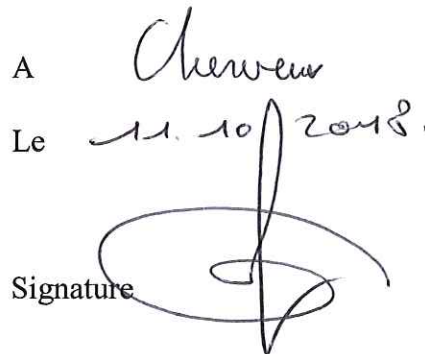 A Cherveux
Le 11.10.2018.
Signature